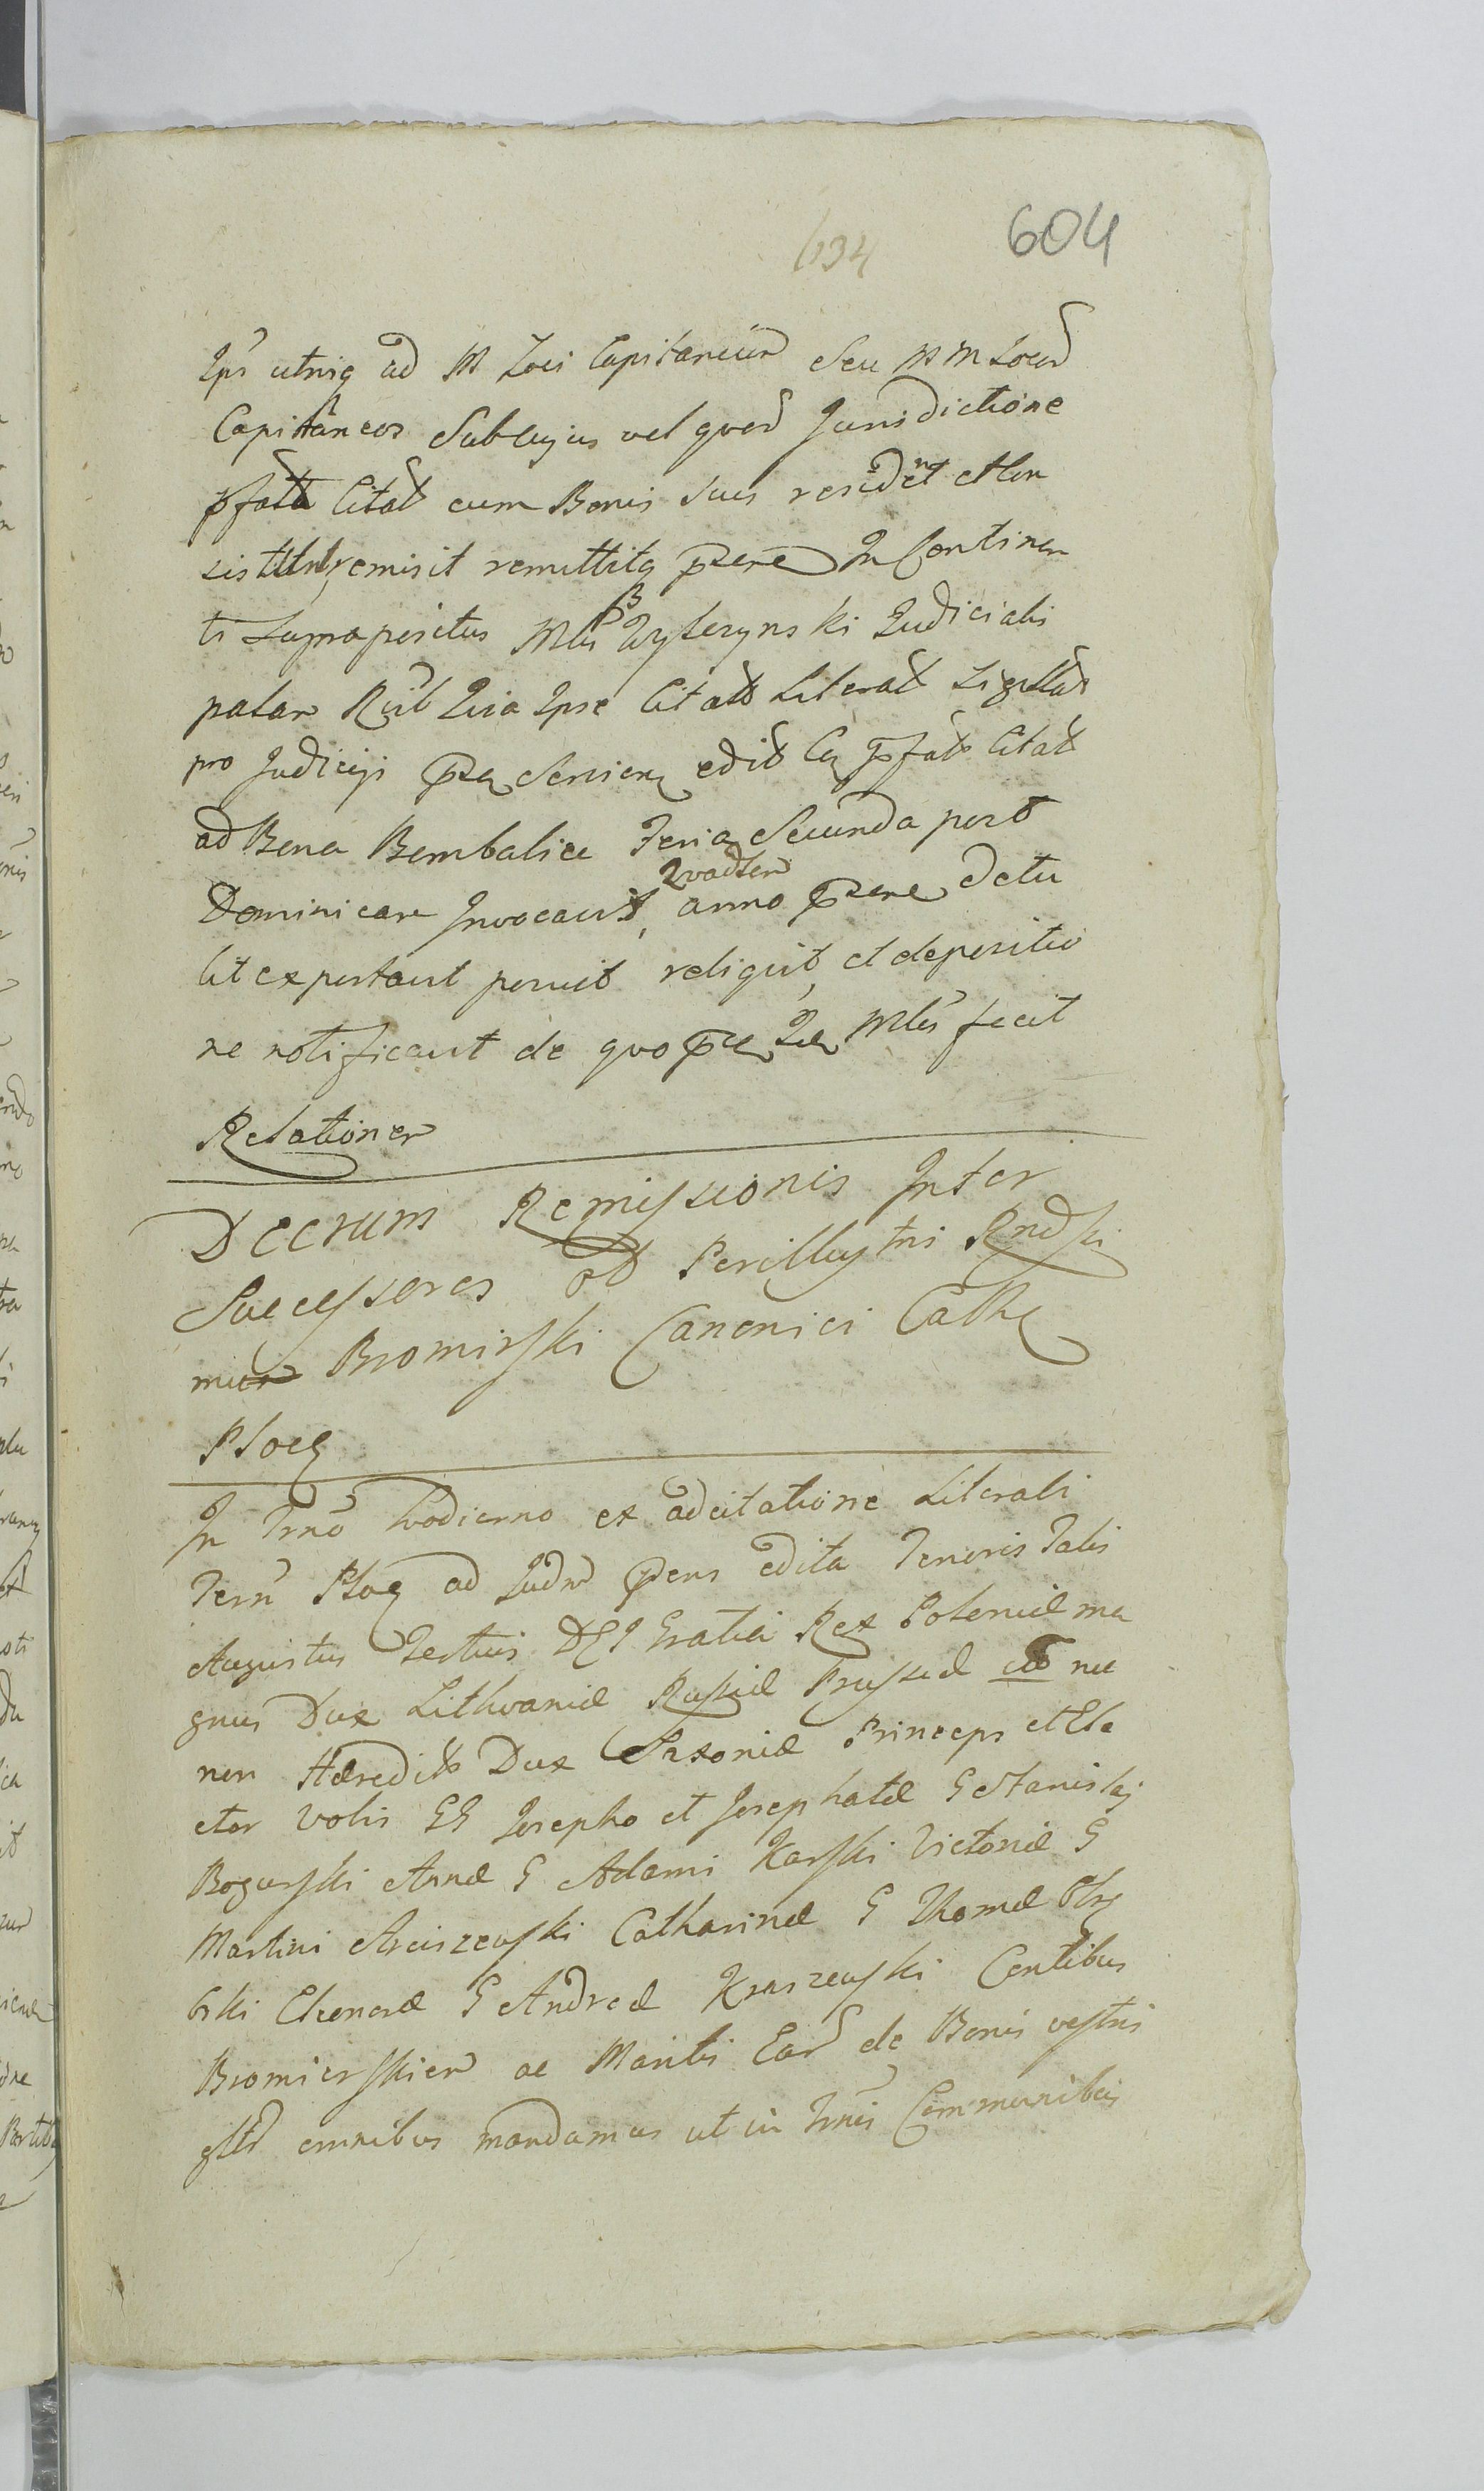 634 604
Ipś utriq ad M Loci Capitaneum Seu M M Locor
Capitaneos Sub cujus vel quor Jurisdictione
pfata Citat cum Bonis Suis resident et
sistunt remisit remittitq In Continen
ti Suprapositus Mlis Judicialis
palam Quia Ipse Citatt Literatt Sigillat
pro Judicijs edit pfat Citat
ad Bona Bembalice Feria Secunda post
Dominicam Invocavit, Quadter anno detu
lit exportavit posuit reliquit, et depositio
ne notificavit de quo Mlis fecit
Relationem
Decrum Remissionis Inter
Successores olb Perillustri Rndssi
mum Bromirski Canonici Cath
Ploc
In Trno hodierno ex adcitatione Literali
Terri Ploc ad Judm edita Tenoris Talis
Augustus Tertius DEI Gratia Rex Poloniæ ma
gnus Dux Lithvaniæ Russiæ Prussiæ nec
non Hæredit Dux Saxoniæ Princeps et Ele
ctor Vobis GG Josepho et Josephatæ G Stanislaj
Bogurski Annæ G Adami Karski Victoriæ G
Martini Arciszewski Catharinæ G Thomæ
Eleonoræ G Andreæ Kraszewski Contibus
Bromierskien ac Maritis Ear de Bonis vestris
omnibus mandamus ut in Trnis Communibus